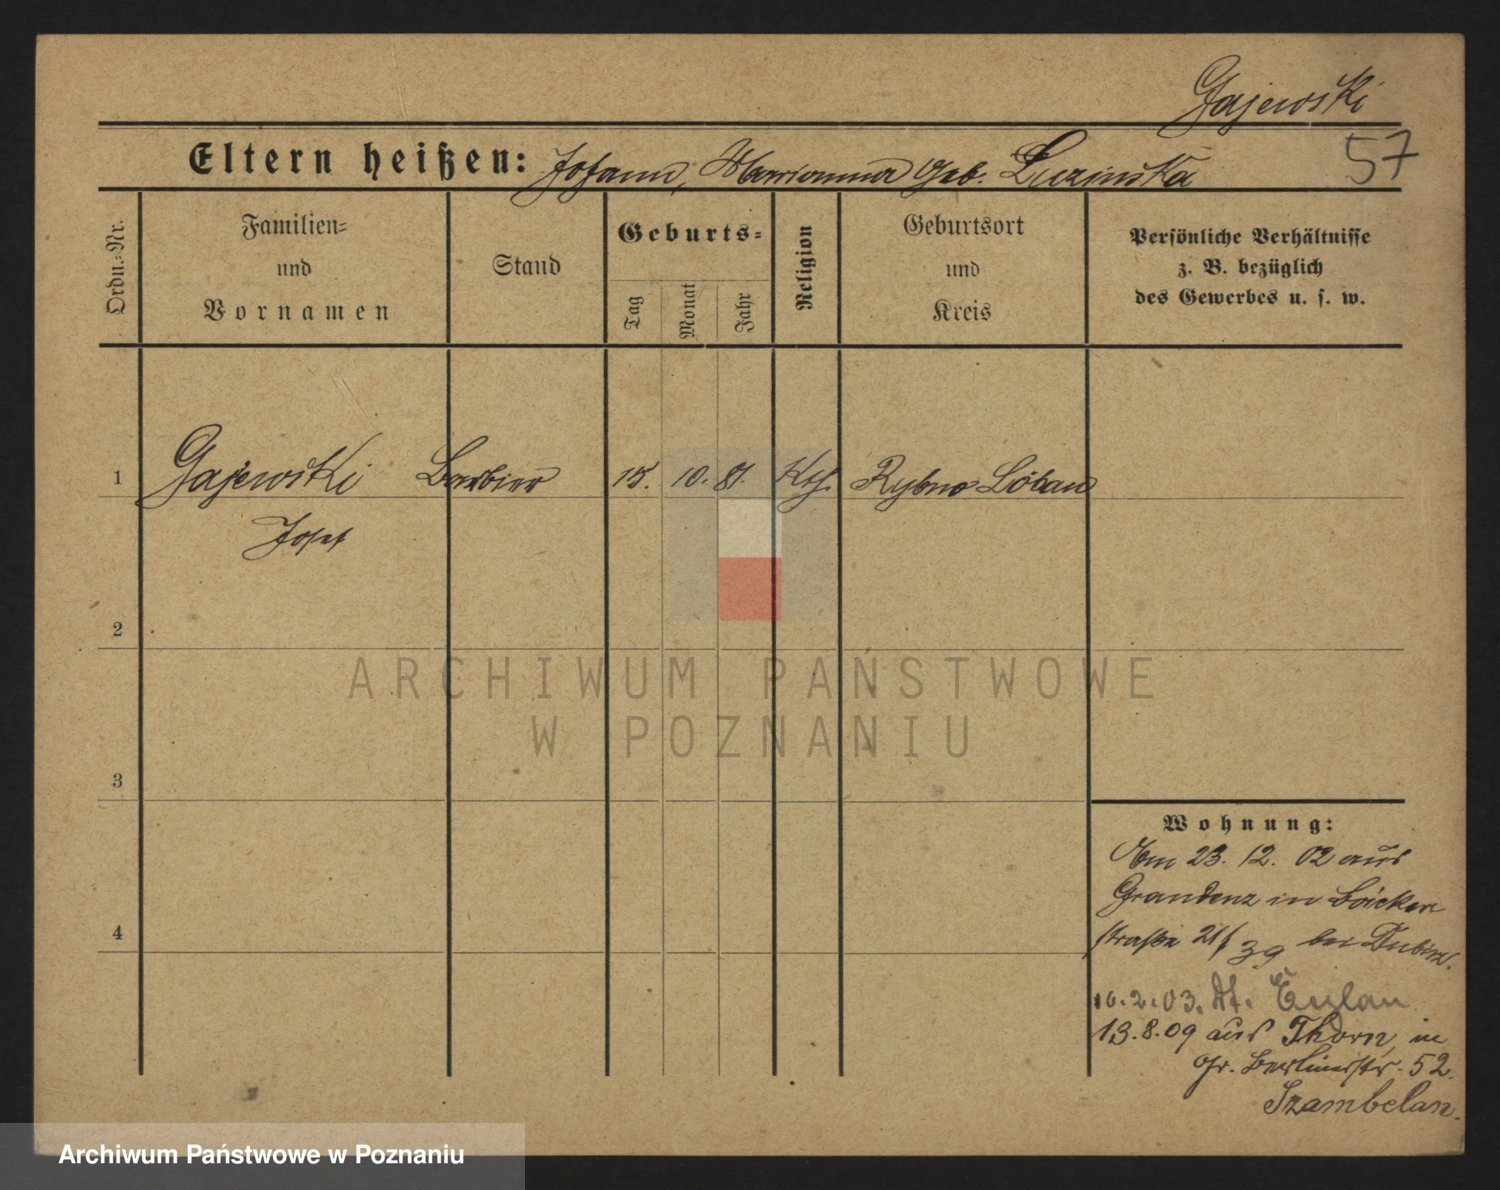 Gajewski
57
Eltern heißen: Johann, Marianna geb. Luzinska
Ordn.-Nr.
Familien-
und
Vornamen
Stand
Geburts-
Tag
Monat
Jahr
Religion
Geburtsort
und
Kreis
Persönliche Verhältnisse
z. B. bezüglich
des Gewerbes u. s. w.
1 Gajewski Barbier 15. 10. 81. Kth. Rybno Löbau
Josef
2
3
4
ARCHIWUM PAŃSTWOWE
W POZNANIU
Wohnung:
Am 23. 12. 02 aus
Graudenz in Bäcker
straße 21/39 bei
16.2.03. Dt. Eylau
13.8.09 aus Thorn, in
Gr. Berlinerstr. 52
Szambelan.
Archiwum Państwowe w Poznaniu